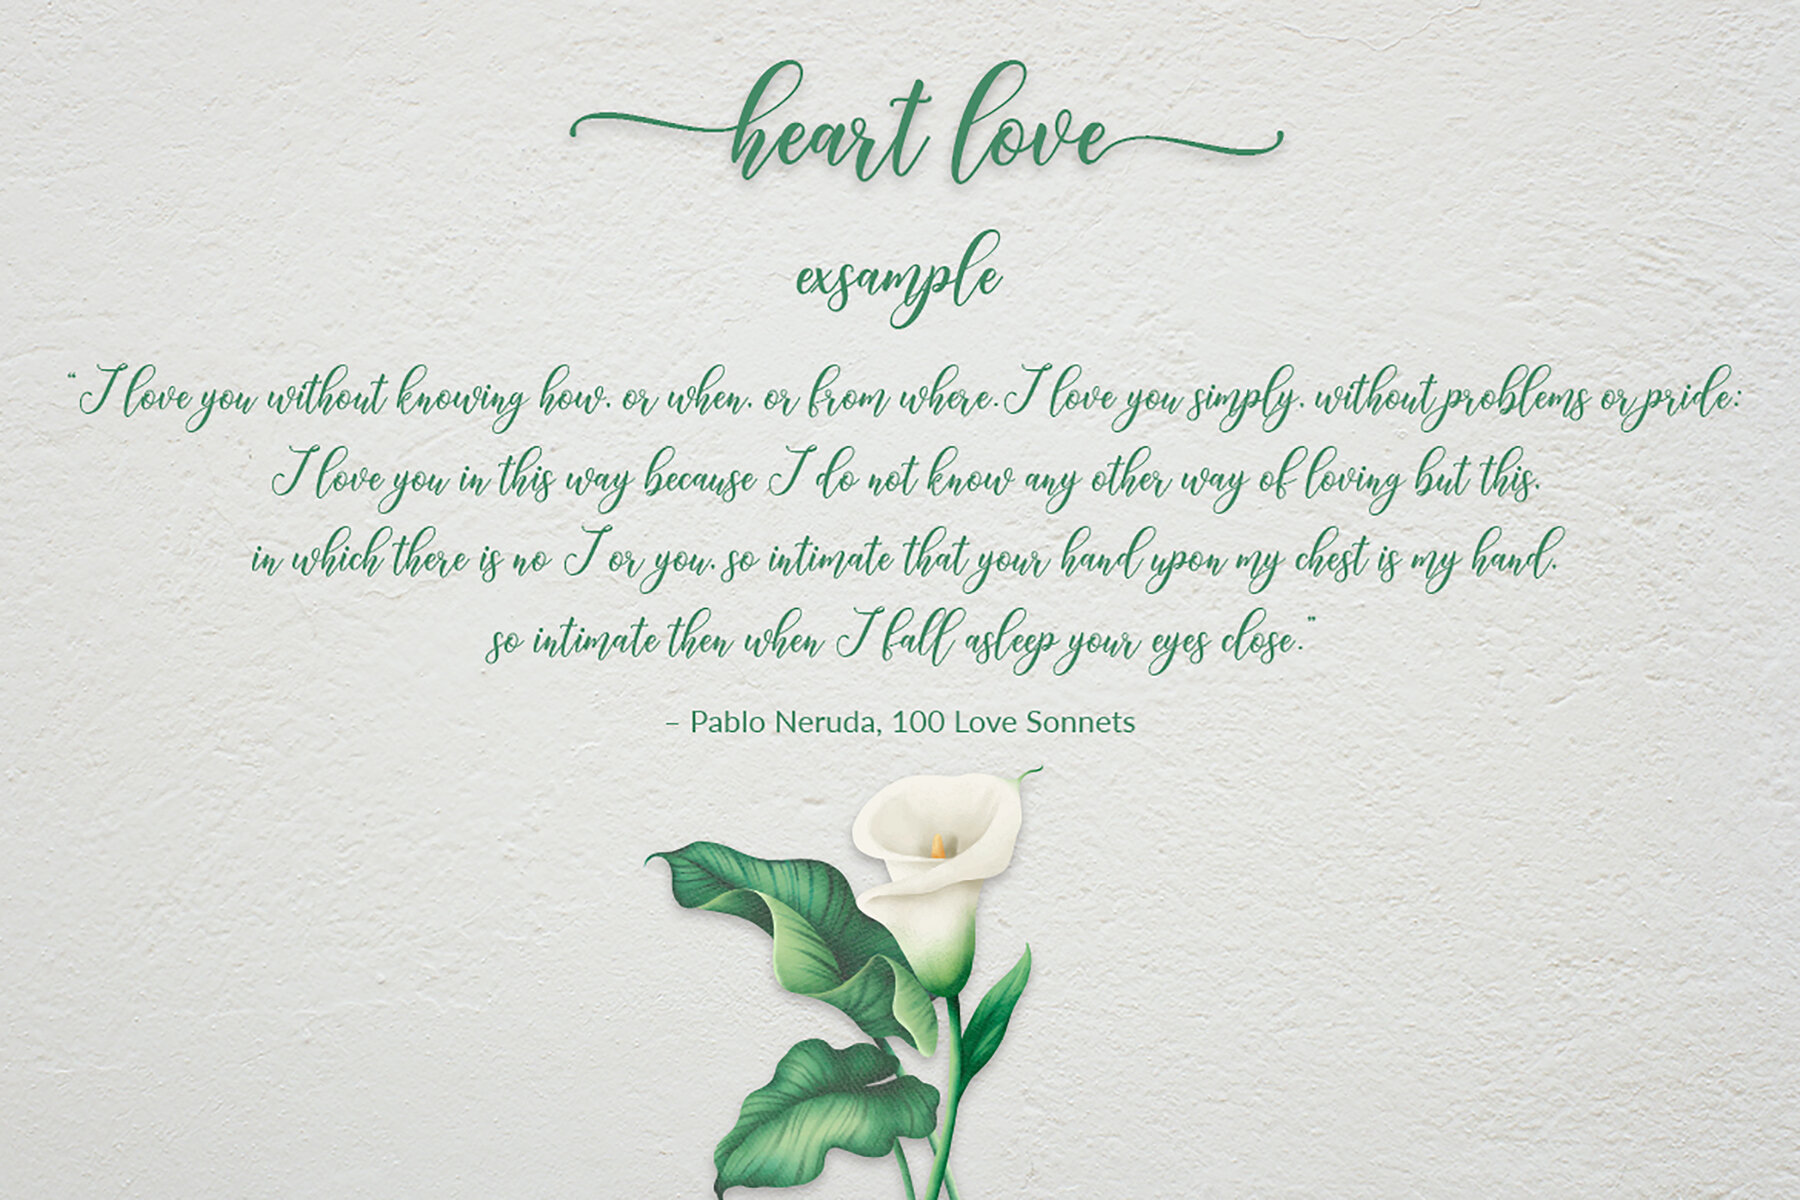 heart love
exsample
“I love you without knowing how, or when, or from where. I love you simply, without problems or pride:
I love you in this way because I do not know any other way of loving but this,
in which there is no I or you, so intimate that your hand upon my chest is my hand,
so intimate then when I fall asleep your eyes close.”
– Pablo Neruda, 100 Love Sonnets